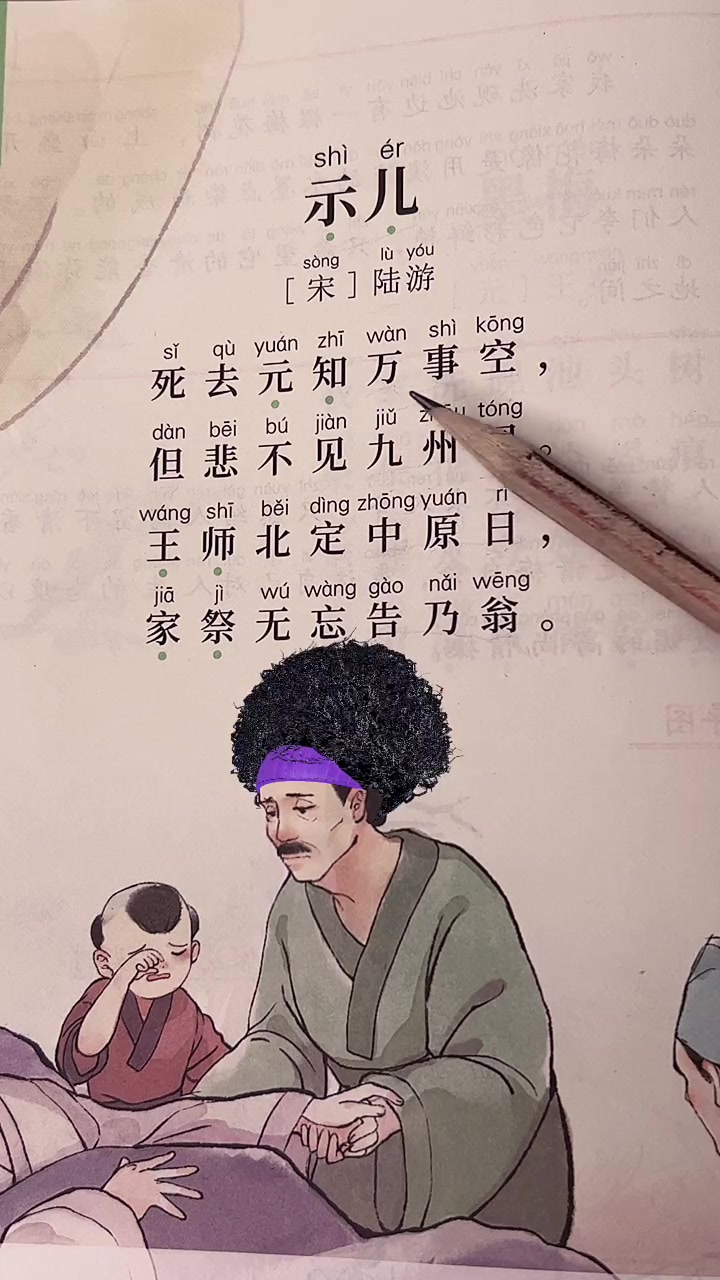 shì ér
示儿
sòng lù yóu
［宋］陆游
sǐ qù yuán zhī wàn shì kōng
死去元知万事空，
dàn bēi bú jiàn jiǔ tóng
但悲不见九州。
wáng shī běi dìng zhōng yuán rì
王师北定中原日，
jiā jì wú wàng gào nǎi wēng
家祭无忘告乃翁。